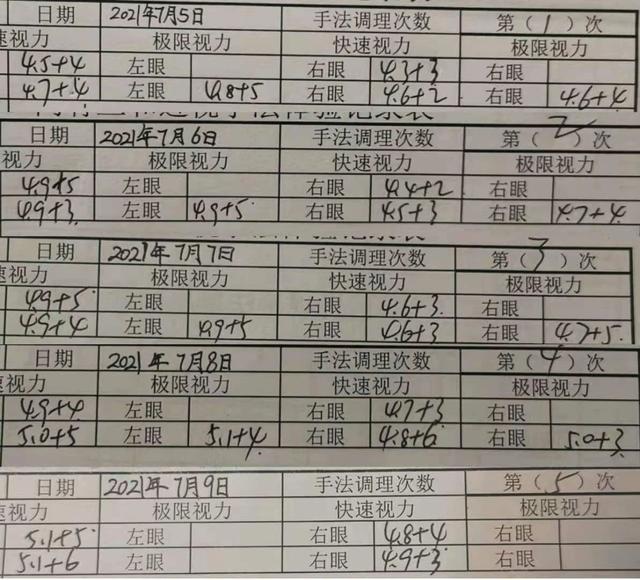 日期 2021年7月5日 手法调理次数 第（1）次
速视力 极限视力 快速视力 极限视力
4.5+4 左眼 右眼 4.3+3 右眼
4.7+4 左眼 4.8+5 右眼 4.6+2 右眼 4.6+4
日期 2021年7月6日 手法调理次数 第（2）次
视力 极限视力 快速视力 极限视力
4.9+5 左眼 右眼 4.4+2 右眼
4.9+3 左眼 4.9+5 右眼 4.5+3 右眼 4.7+4
日期 2021年7月7日 手法调理次数 第（3）次
速视力 极限视力 快速视力 极限视力
4.9+5 左眼 右眼 4.6+3 右眼
4.9+4 左眼 4.9+5 右眼 4.6+3 右眼 4.7+5
日期 2021年7月8日 手法调理次数 第（4）次
速视力 极限视力 快速视力 极限视力
4.9+4 左眼 右眼 4.7+3 右眼
5.0+5 左眼 5.1+4 右眼 4.8+6 右眼 5.0+3
日期 2021年7月9日 手法调理次数 第（5）次
速视力 极限视力 快速视力 极限视力
5.1+5 左眼 右眼 4.8+4 右眼
5.1+6 左眼 右眼 4.9+3 右眼